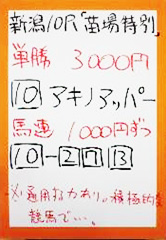 新潟10R「苗場特別」
単勝 3000円
10 アキノアッパー
馬連 1000円ずつ
10-2 7 13
積極的な
競馬で…